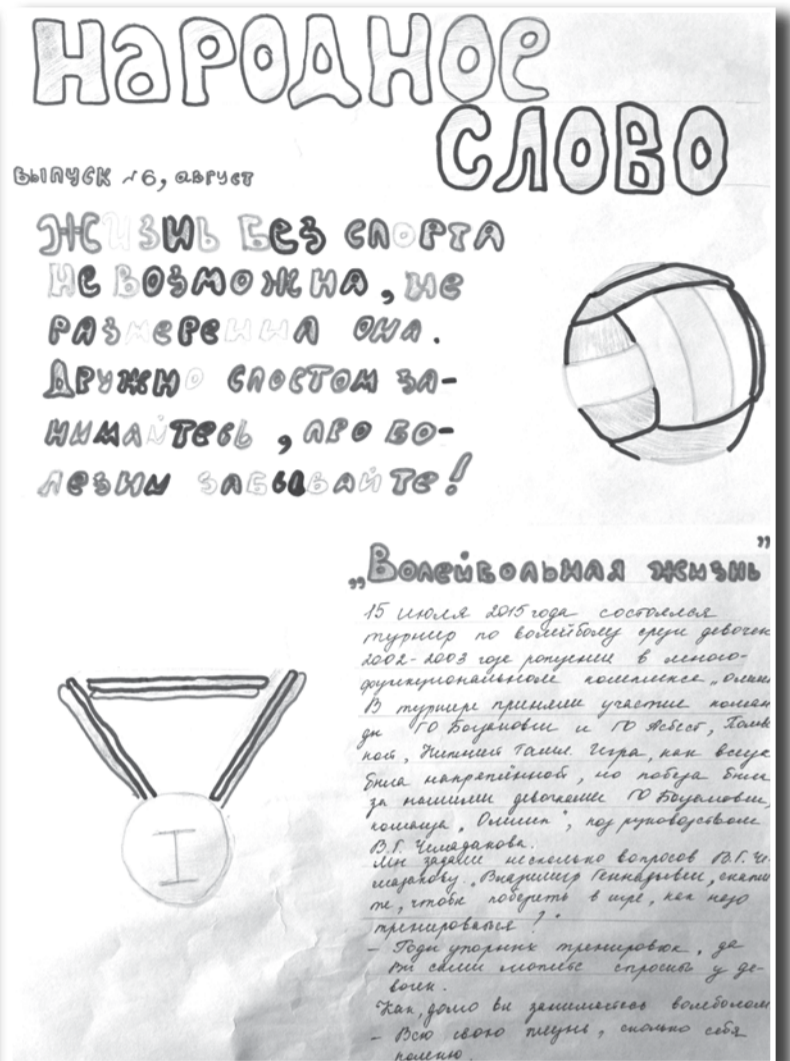 Народное
Слово
Выпуск №6, август
Жизнь без спорта
не возможна, не
размеренна она.
Дружно спостом за-
нимайтесь, про бо-
лезни забывайте!
„Волейбольная жизнь”
15 июля 2015 года состоялся
турнир по волейболу среди девочек
2002-2003 годе рождения в много-
функциональном комплексе „Олимп
В турнире приняли участие коман-
ды ГО Богданович и ГО Асбест, Полев
ской, Нижний Тагил. Игра, как всегда
была напряжённой, но победа была
за нашими девочками ГО Богданович,
команда „Олимп”, под руководством
В.Г. Чемадакова.
Мы задали несколько вопросов В.Г. Че-
мадакову. „Владимир Геннадьевич, скажи
те, чтобы победить в игре, как надо
тренироваться?”
- Годы упорных тренировок, да
вы сами можете спросить у де-
вочек.
"Как долго вы занимаетесь волейболом
- Всю свою жизнь, сколько себя
помню.
I